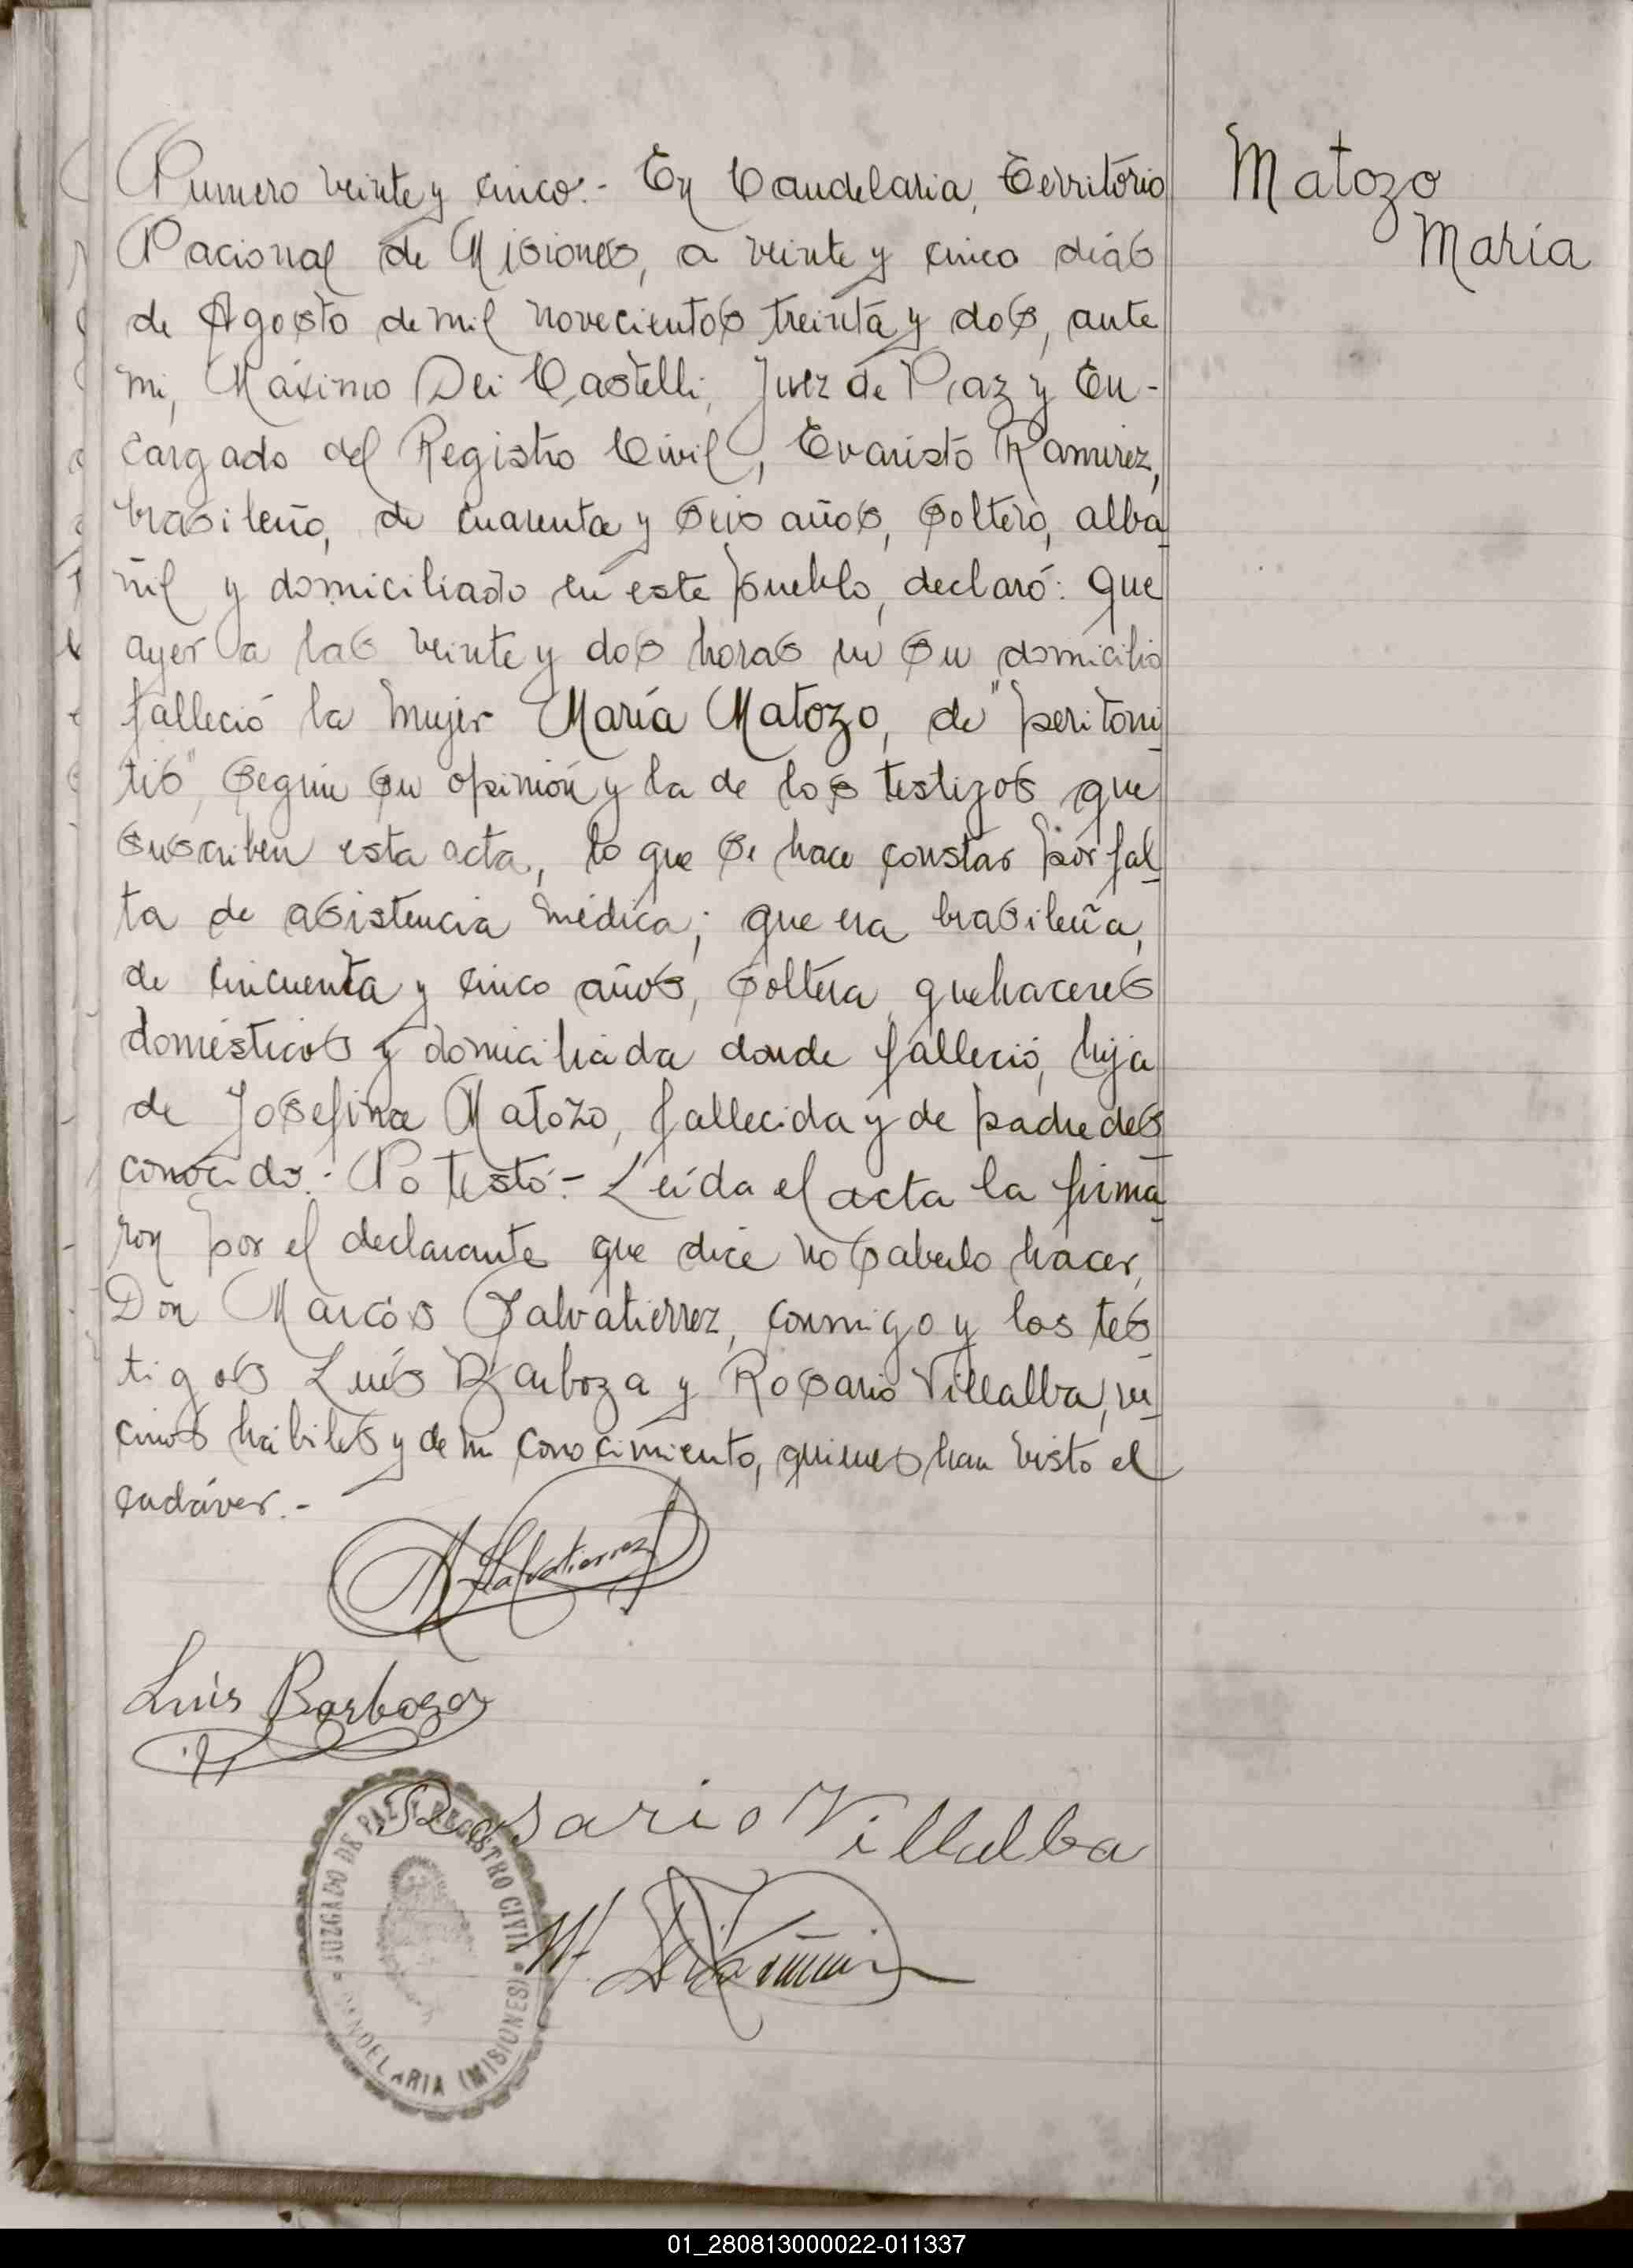 Numero veinte y cinco.- En Candelaria, Territorio
Nacional de Misiones, a veinte y cinco dias
de Agosto de mil novecientos treinta y dos, ante
mi, Máximo Dei Castelli, Juez de Paz y En-
cargado del Registro Civil, Evaristo Ramirez,
brasileño, de cuarenta y seis años, soltero, alba
ñil y domiciliado en este pueblo, declaró: que
ayer a las veinte y dos horas en su domicilio
falleció la mujer María Matozo, de "peritoni
tis", según su opinión y la de los testigos que
suscriben esta acta, lo que se hace constar por fal
ta de asistencia médica; que era brasileña,
de cincuenta y cinco años, soltera, quehaceres
domésticos y domiciliada donde falleció, hija
de Josefina Matozo, fallecida y de padre des
conocido.- No testó.- Leída el acta la firma
ron por el declarante que dice no saberlo hacer,
Don Marcos Salvatierrez, conmigo y los tes
tigos Luís Barboza y Rosario Villalba, ve
cinos hábiles y de mi conocimiento, quienes han visto el
cadáver.-
Matozo
María
M Salvatierrez
Luis Barboza
Rosario Villalba
JUZGADO DE PAZ Y REGISTRO CIVIL
CANDELARIA (MISIONES)
01_280813000022-011337